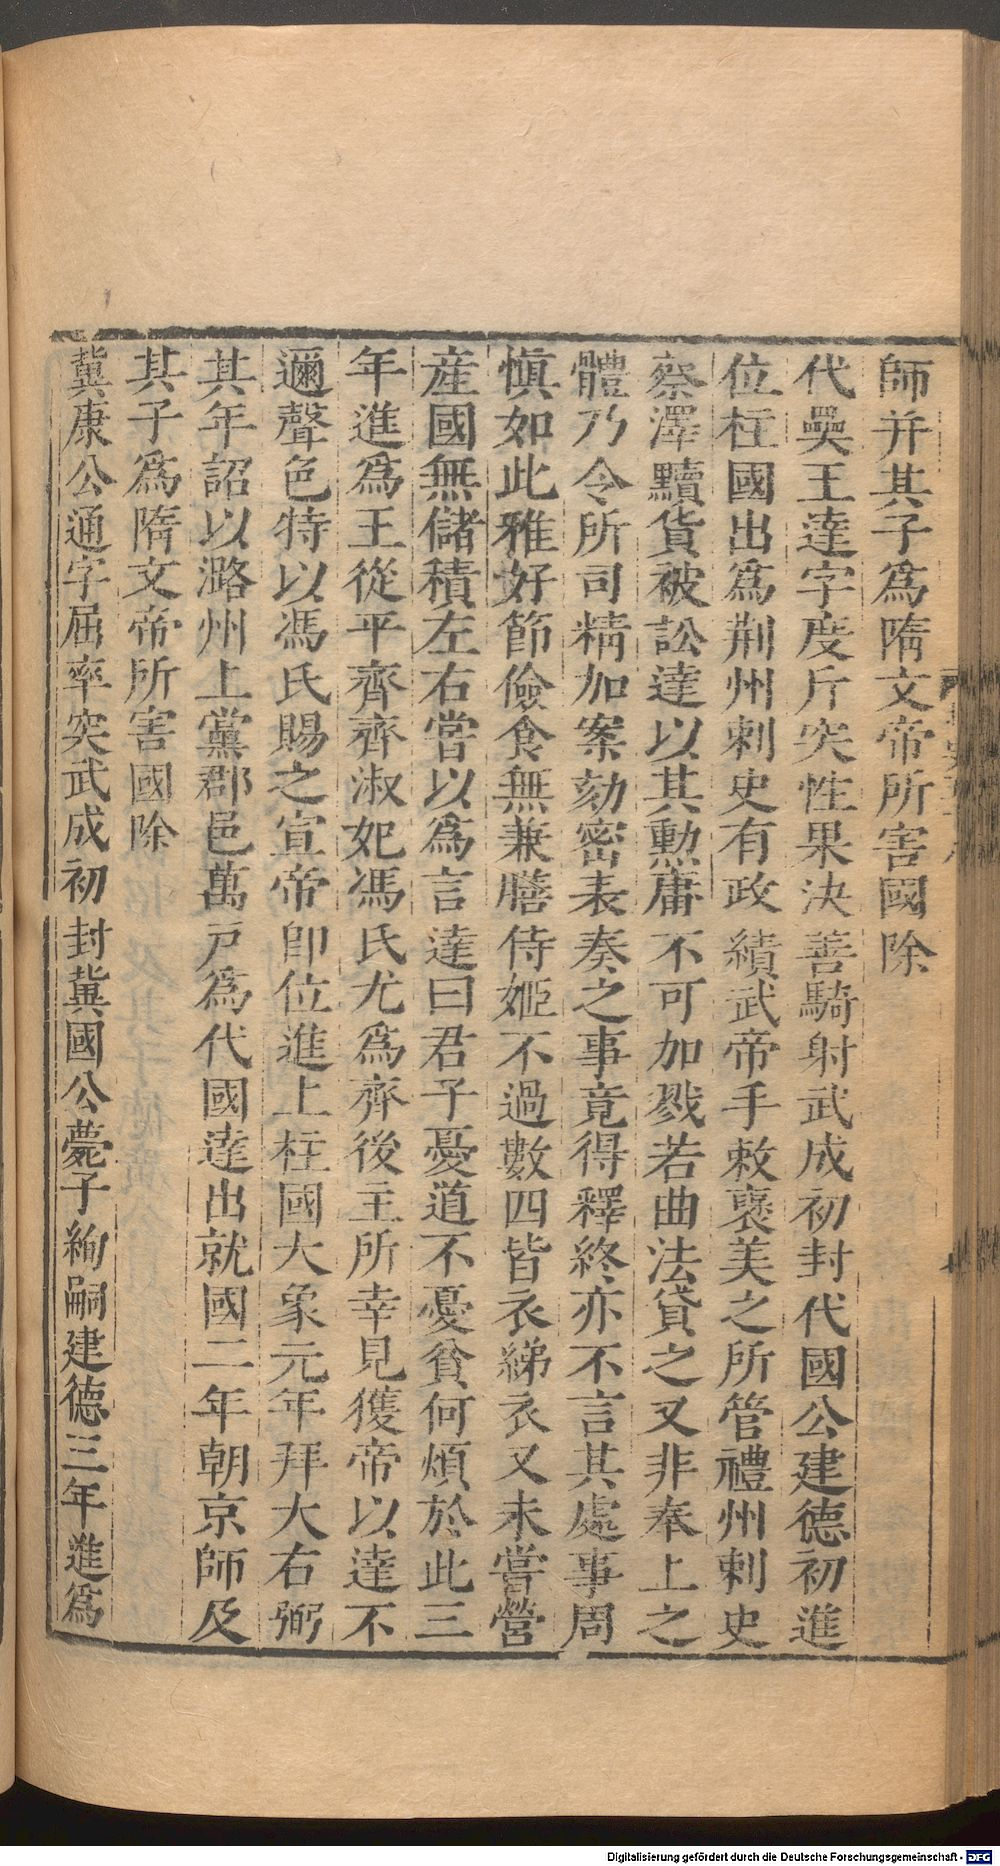 師并其子爲隋文帝所害國除
代奰王達字度斤突性果決善騎射武成初封代國公建德初進
位柱國出爲荆州刺史有政績武帝手敕襃美之所管禮州刺史
蔡澤黷貨被訟達以其勲庸不可加戮若曲法貸之又非奉上之
體乃令所司精加案劾密表奏之事竟得釋終亦不言其處事周
慎如此雅好節儉食無兼膳侍姬不過數四皆衣綈衣又未嘗營
産國無儲積左右嘗以爲言達曰君子憂道不憂貧何煩於此三
年進爲王從平齊齊淑妃馮氏尤爲齊後主所幸見獲帝以達不
邇聲色特以馮氏賜之宣帝即位進上柱國大象元年拜大右弼
其年詔以潞州上黨郡邑萬戸爲代國達出就國二年朝京師及
其子爲隋文帝所害國除
冀康公通字屈率突武成初封冀國公薨子絢嗣建德三年進爲
Digitalisierung gefördert durch die Deutsche Forschungsgemeinschaft - DFG